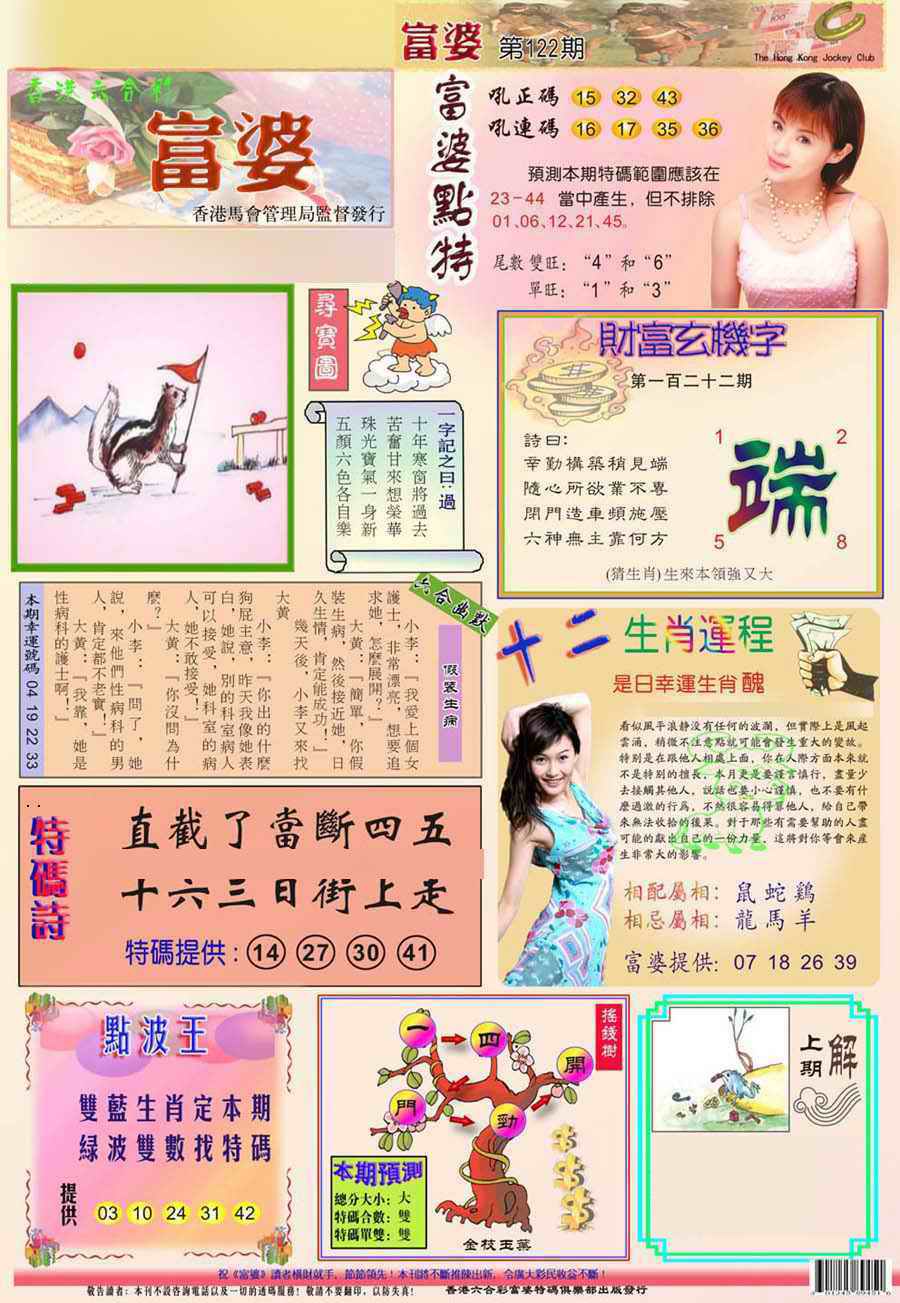 富婆 第122期
The Hong Kong Jockey Club
香港六合彩
富婆
香港馬會管理局監督發行
富婆點特
吼正碼 15 32 43
吼連碼 16 17 35 36
預測本期特碼範圍應該在
23-44 當中產生，但不排除
01、06、12、21、45。
尾數雙旺：“4”和“6”
單旺：“1”和“3”
尋寶圖
一字記之曰：過
十年寒窗將過去
苦奮甘來想榮華
珠光寶氣一身新
五顏六色各自樂
財富玄機字
第一百二十二期
詩曰：
幸勤構築稍見端
隨心所欲業不專
閉門造車頻施壓
六神無主靠何方
1 2
端
5 8
(猜生肖)生來本領強又大
六合幽默
假裝生病
小李：『我愛上個女
護士，非常漂亮，想要追
求她，怎麼展開？』
大黃：『簡單，你假
裝生病，然後接近她，日
久生情，肯定能成功！』
幾天後，小李又來找
大黃
小李：『你出的什麼
狗屁主意，昨天我像她表
白，她說，別的科室病人
可以接受，她科室的病
人，她不敢接受！』
大黃：『你沒問為什
麼？』
小李：『問了，她
說，來他們性病科的男
人，肯定都不老實！』
大黃：『我靠，她是
性病科的護士啊！』
本期幸運號碼 04 19 22 33
十二生肖運程
是日幸運生肖醜
看似風平浪静没有任何的波瀾，但實際上是風起
雲涌，稍微不注意點就可能會發生重大的變故。
特别是在跟他人相處上面，你在人際方面本來就
不是特别的擅長，本月更是要謹言慎行，盡量少
去接觸其他人，説話也要小心謹慎，也不要有什
麽過激的行爲，不然很容易得罪他人，給自己帶
來無法收拾的後果。對于那些有需要幫助的人盡
可能的獻出自己的一份力量，這將對你等會來産
生非常大的影響。
相配屬相：鼠蛇鷄
相忌屬相：龍馬羊
富婆提供：07 18 26 39
特碼詩
直截了當斷四五
十六三日街上走
特碼提供：14 27 30 41
點波王
雙藍生肖定本期
綠波雙數找特碼
提供 03 10 24 31 42
搖錢樹
一 四 開
門 勁
本期預測
總分大小：大
特碼合數：雙
特碼單雙：雙
金枝玉葉
上期解
祝《富婆》讀者橫財就手，節節領先！本刊將不斷推陳出新，令廣大彩民收益不斷！
敬告讀者：本刊不設咨詢電話以及一切的透碼服務！敬請不要翻印，以防失真！ 香港六合彩富婆特碼俱樂部出版發行